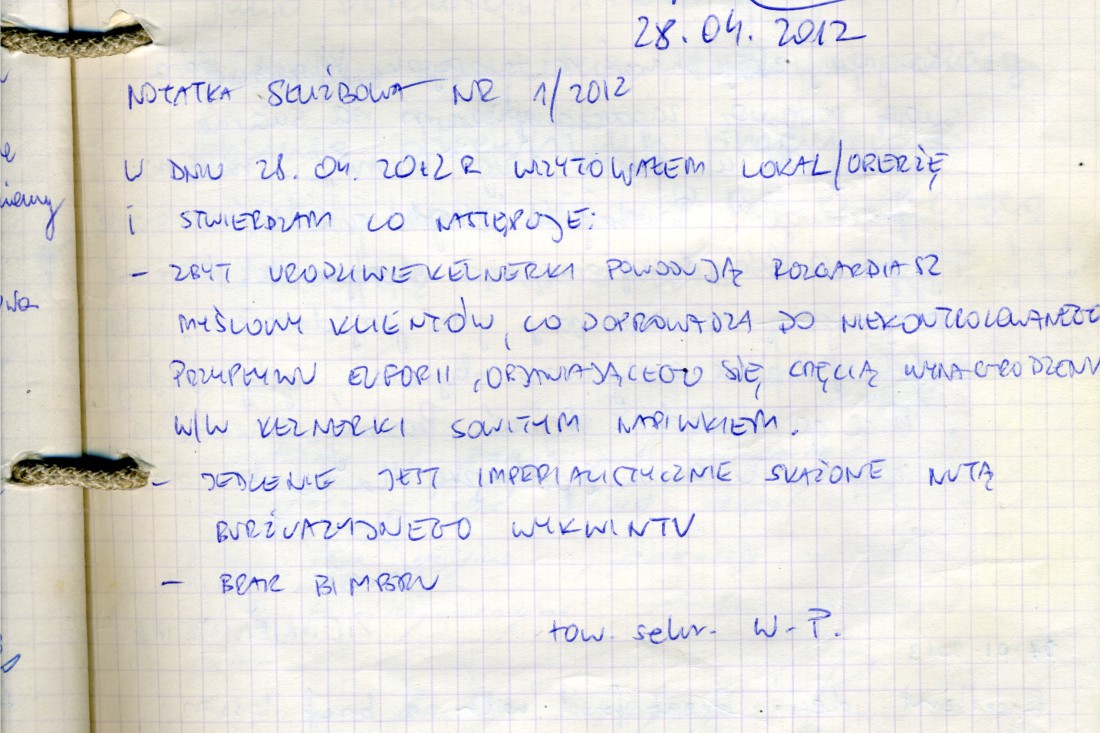 28.04.2012
NOTATKA SŁUŻBOWA NR 1/2012
W DNIU 28.04.2012 R WIZYTOWAŁEM LOKAL/OBERŻĘ
I STWIERDZAM CO NASTĘPUJE:
- ZBYT URODZIWE KELNERKI POWODUJĄ ROZGARDIASZ
MYŚLOWY KLIENTÓW, CO DOPROWADZA DO NIEKONTROLOWANEGO
PRZYPŁYWU EUFORII, OBJAWIAJĄCEGO SIĘ CHĘCIĄ WYNAGRODZENIA
W/W KELNERKI SOWITYM NAPIWKIEM.
- JEDZENIE JEST IMPERIALISTYCZNIE SKAŻONE NUTĄ
BURŻUAZYJNEGO WYKWINTU
- BRAK BIMBRU
tow. sekr. W-P.